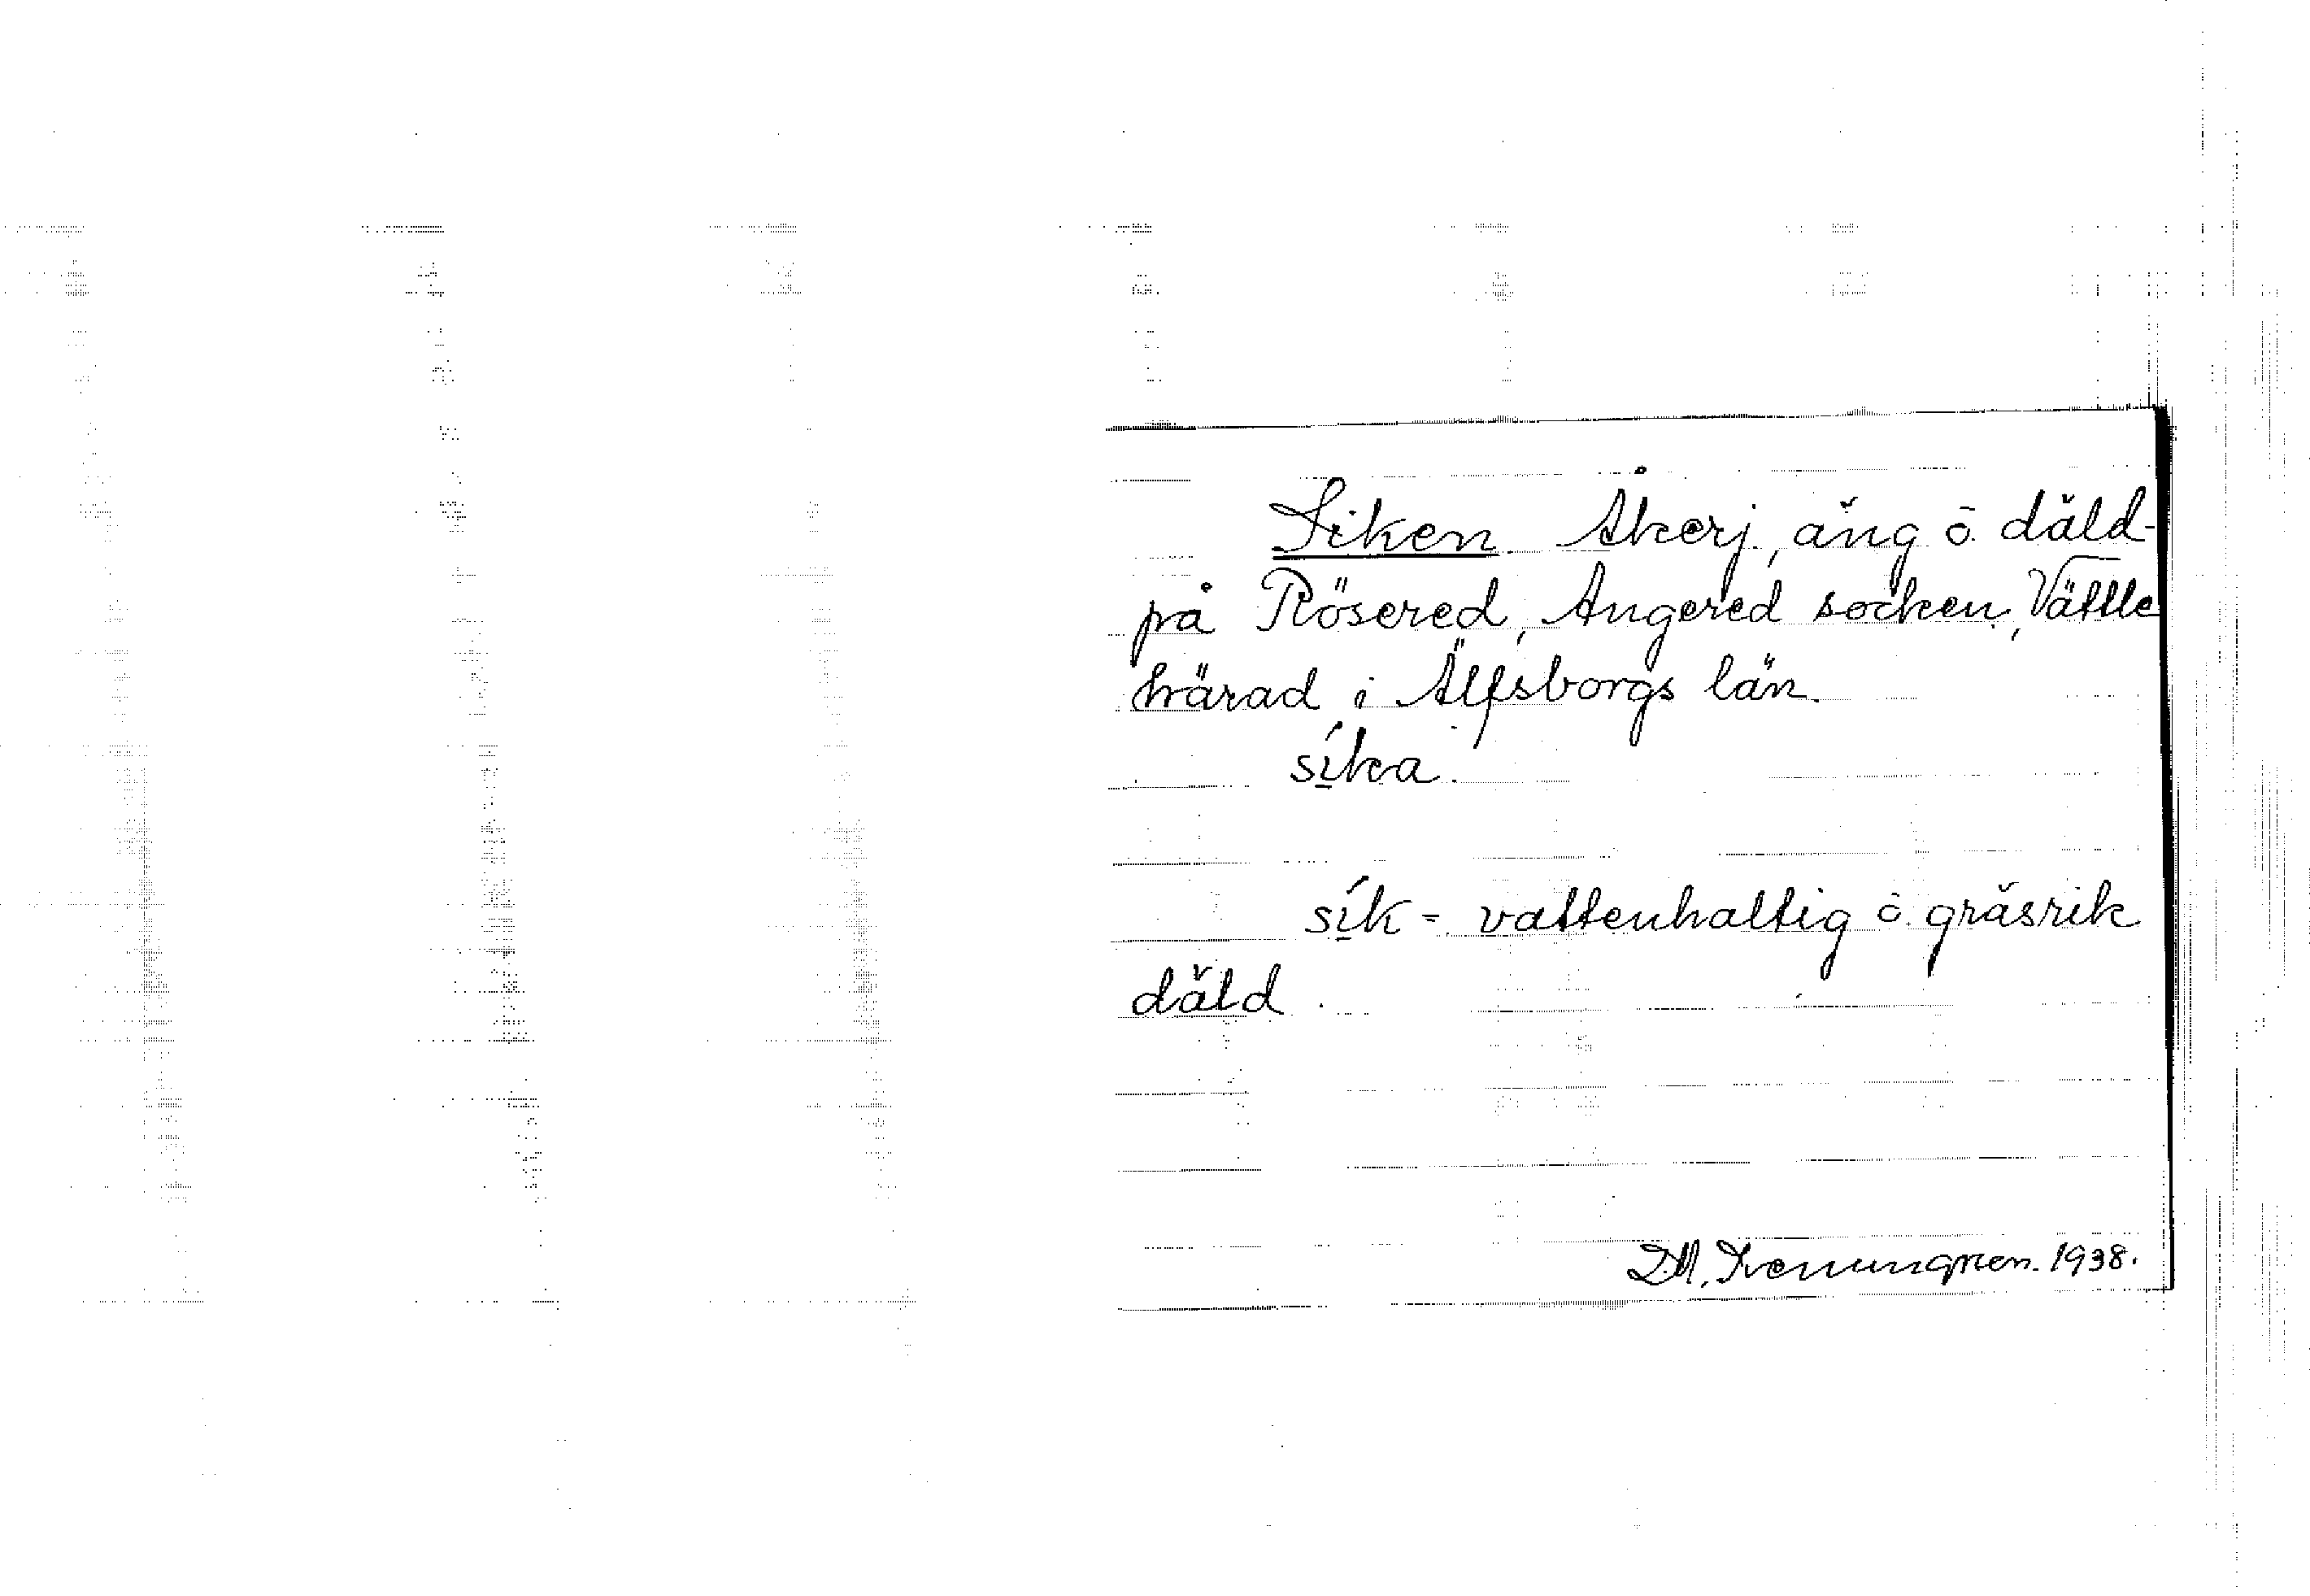 Siken Åkerj, äng o. däld-
på Rösered, Angered socken, Vättle
härad i Älfsborgs län.
síka.
sík - vattenhaltig o. gräsrik
däld.
D.M. 1938.